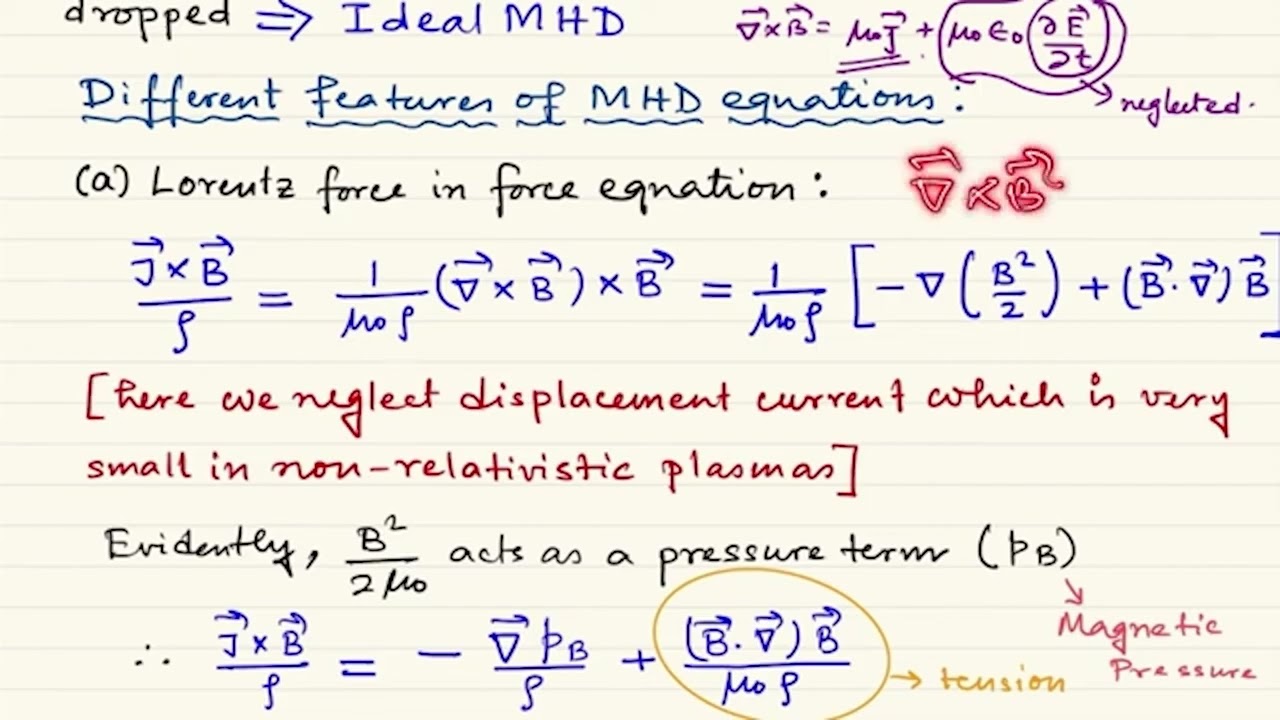 dropped ⟹ Ideal MHD
∇⃗×B⃗ = μ₀J⃗ + μ₀ϵ₀ ∂E⃗/∂t
→ neglected.
Different features of MHD equations:
(a) Lorentz force in force equation:
∇⃗×B⃗
J⃗×B⃗/ρ = 1/μ₀ρ (∇⃗×B⃗)×B⃗ = 1/μ₀ρ [-∇(B²/2) + (B⃗.∇⃗)B⃗]
[here we neglect displacement current which is very
small in non-relativistic plasmas]
Evidently, B²/2μ₀ acts as a pressure term (p_B)
Magnetic
Pressure
∴ J⃗×B⃗/ρ = - ∇⃗p_B/ρ + (B⃗.∇⃗)B⃗/μ₀ρ → tension